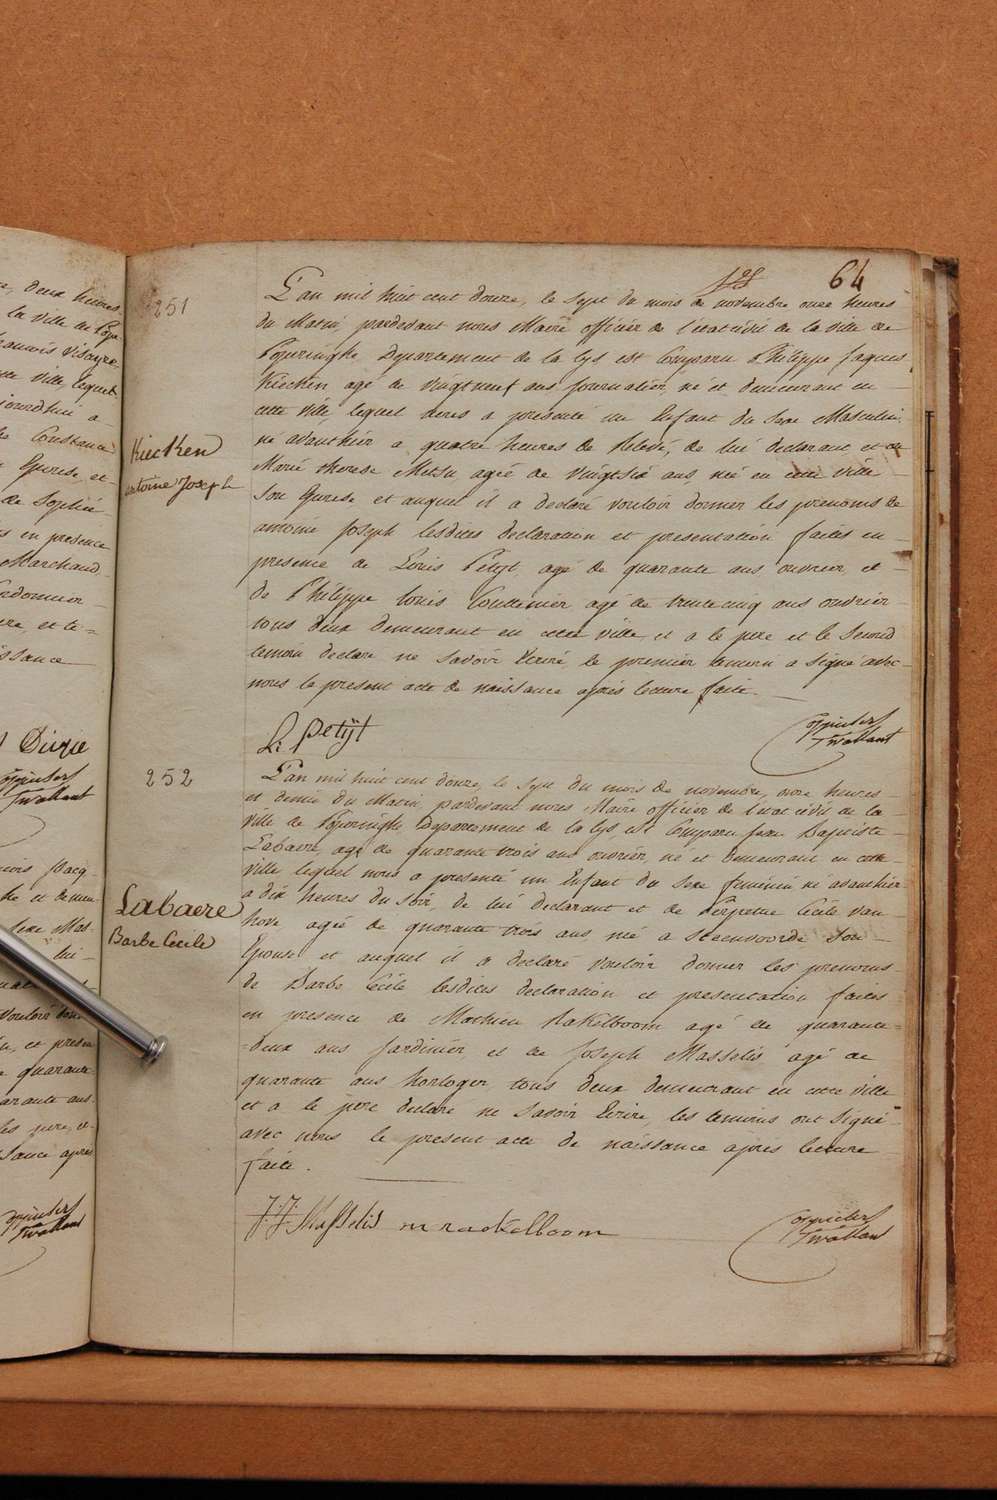 64
251
Kiecken
antoine Joseph
L'an mil huit cent douze, le sept du mois de novembre onze heures
du Matin pardevant nous Maire officier de l'etat civil de la ville de
Poperinghe Departement de la Lys est Comparu Philippe Jaques
Kiecken agé de vingtneuf ans journalier, né et demeurant en
cette ville, lequel nous a presenté un Enfant du Sexe Masculin
né avanthier a quatre heures de Relevé, de lui declarant et de
Marie therese agée de vingtsix ans, née en cette ville
Son Epouse et auquel il a declaré vouloir donner les prenoms de
antoine Joseph lesdites declaration et presentation faites en
presence de Louis Petyt agé de quarante ans ouvrier, et
de Philippe Louis agé de trente cinq ans ouvrier
tous deux demeurant en cette ville, et a le pere et le Second
temoin declaré ne Savoir Ecrire, le premier temoin a Signé avec
nous le present acte de naissance après lecture faite
L. Petijt
252
Labaere
Barbe Cecile
L'an mil huit cent douze, le sept du mois de novembre, onze heures
et demie du Matin, pardevant nous Maire officier de l'etat civil de la
ville de Poperinghe Departement de la Lys, est Comparu Jean Baptiste
Labaere, agé de quarante trois ans ouvrier, né et demeurant en cette
ville lequel nous a presenté un Enfant du Sexe feminin né avanthier
a dix heures du Soir, de lui declarant et de Perpetue Cécile van
hove, agée de quarante trois ans née a Steenvoorde Son
Epouse et auquel il a declaré vouloir donner les prenoms
de Barbe Cécile lesdites declaration et presentation faites
en presence de Mathieu Rakelboom agé de quarante
deux ans Jardinier, et de Joseph Masselis agé de
quarante ans horloger tous deux demeurant en cette ville
et a le pere declaré ne Savoir Ecrire, les temoins ont Signé
avec nous le present acte de naissance après lecture
faite.
J. J. Masselis m rackelboom